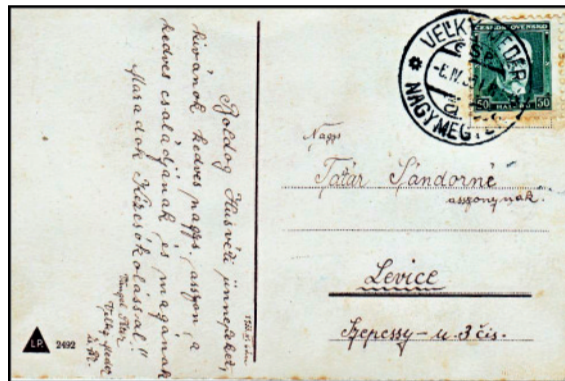 Boldog Húsvéti ünnepeket,
kivánok kedves nagys. asszony, a
kedves családjának és magának
Maradok Kézcsókolással!
Veľký Meder
LP. 2492
VEĽKÝ MEDER
NAGYMEG
ČESKOSLOVENSKO
50 HALÉŘŮ 50
Nagys
Tatár Sándorné
asszonynak.
Levice
Szepessy-u. 3 čis.